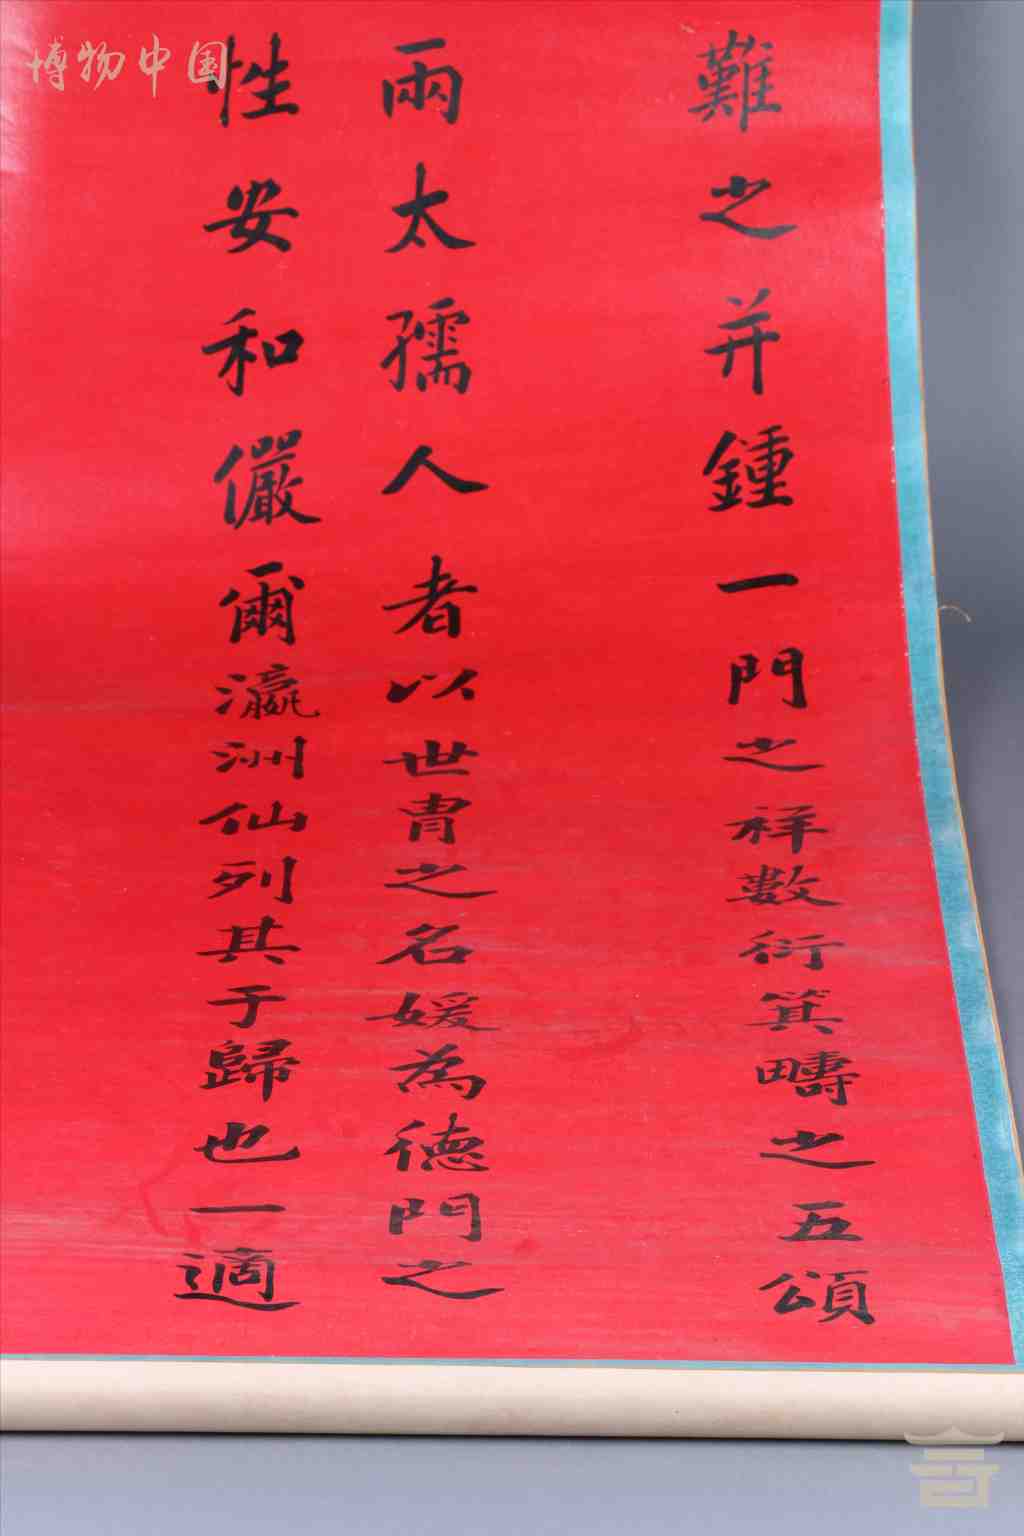 難之并鍾一門之祥數衍箕疇之五頌
兩太孺人者以世胄之名媛為德門之
性安和儼爾瀛洲仙列其于歸也一適
博物中国